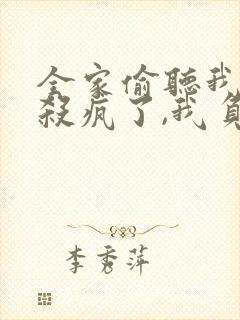 全家偷聽我
殺瘋了,我負
李秀萍